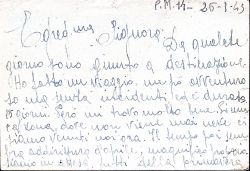 P.M. 14 - 26-1-43
Egreg.ma Signora! Da qualche
giorno sono giunto a destinazione.
Ho fatto un viaggio un pò avventuro
so ma senza incidenti ed è durato
15 giorni. Però mi trovo molto bene. Siamo
in zona dove non viene mai neve ci
siamo venuti noi ora. Il tempo poi sem
bra addirittura d'aprile, magnifico
siamo in attesa, tutti della primavera